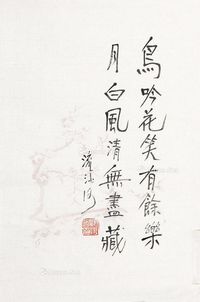 鳥吟花笑有餘樂
月白風清無盡藏
流沙河